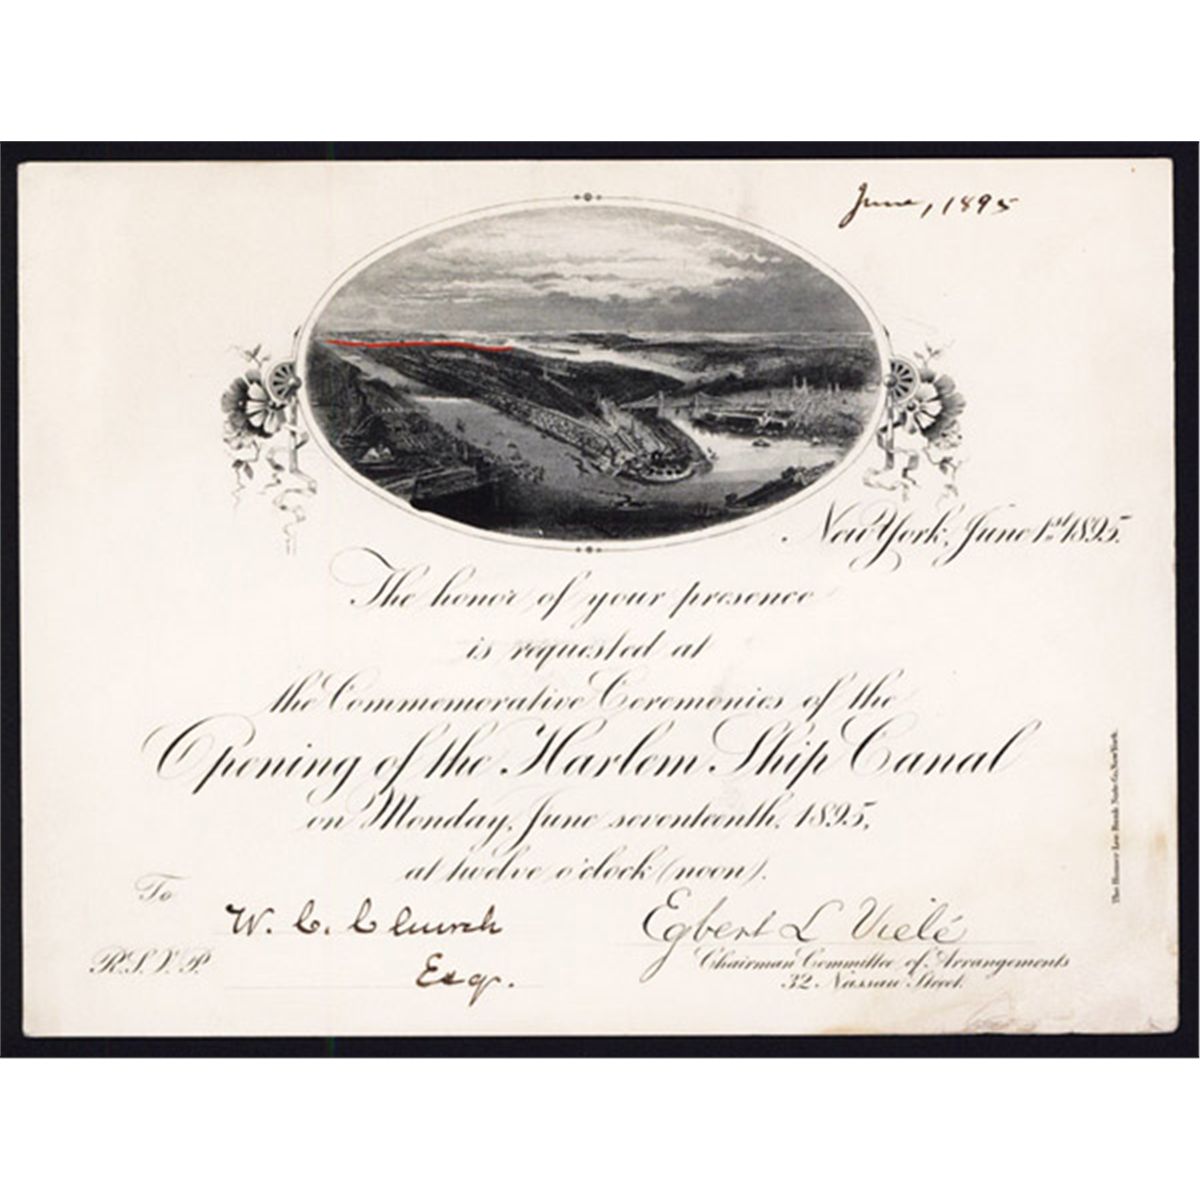 June, 1895
New York, June 1st 1895.
The honor of your presence
is requested at
the Commemorative Ceremonies of the
Opening of the Harlem Ship Canal
on Monday, June seventeenth, 1895,
at twelve o'clock (noon).
To
W. C. Church
Esqr.
R.S.V.P.
Egbert L Vielé
Chairman Committee of Arrangements
32 Nassau Street.
The Homer Lee Bank Note Co. New York.